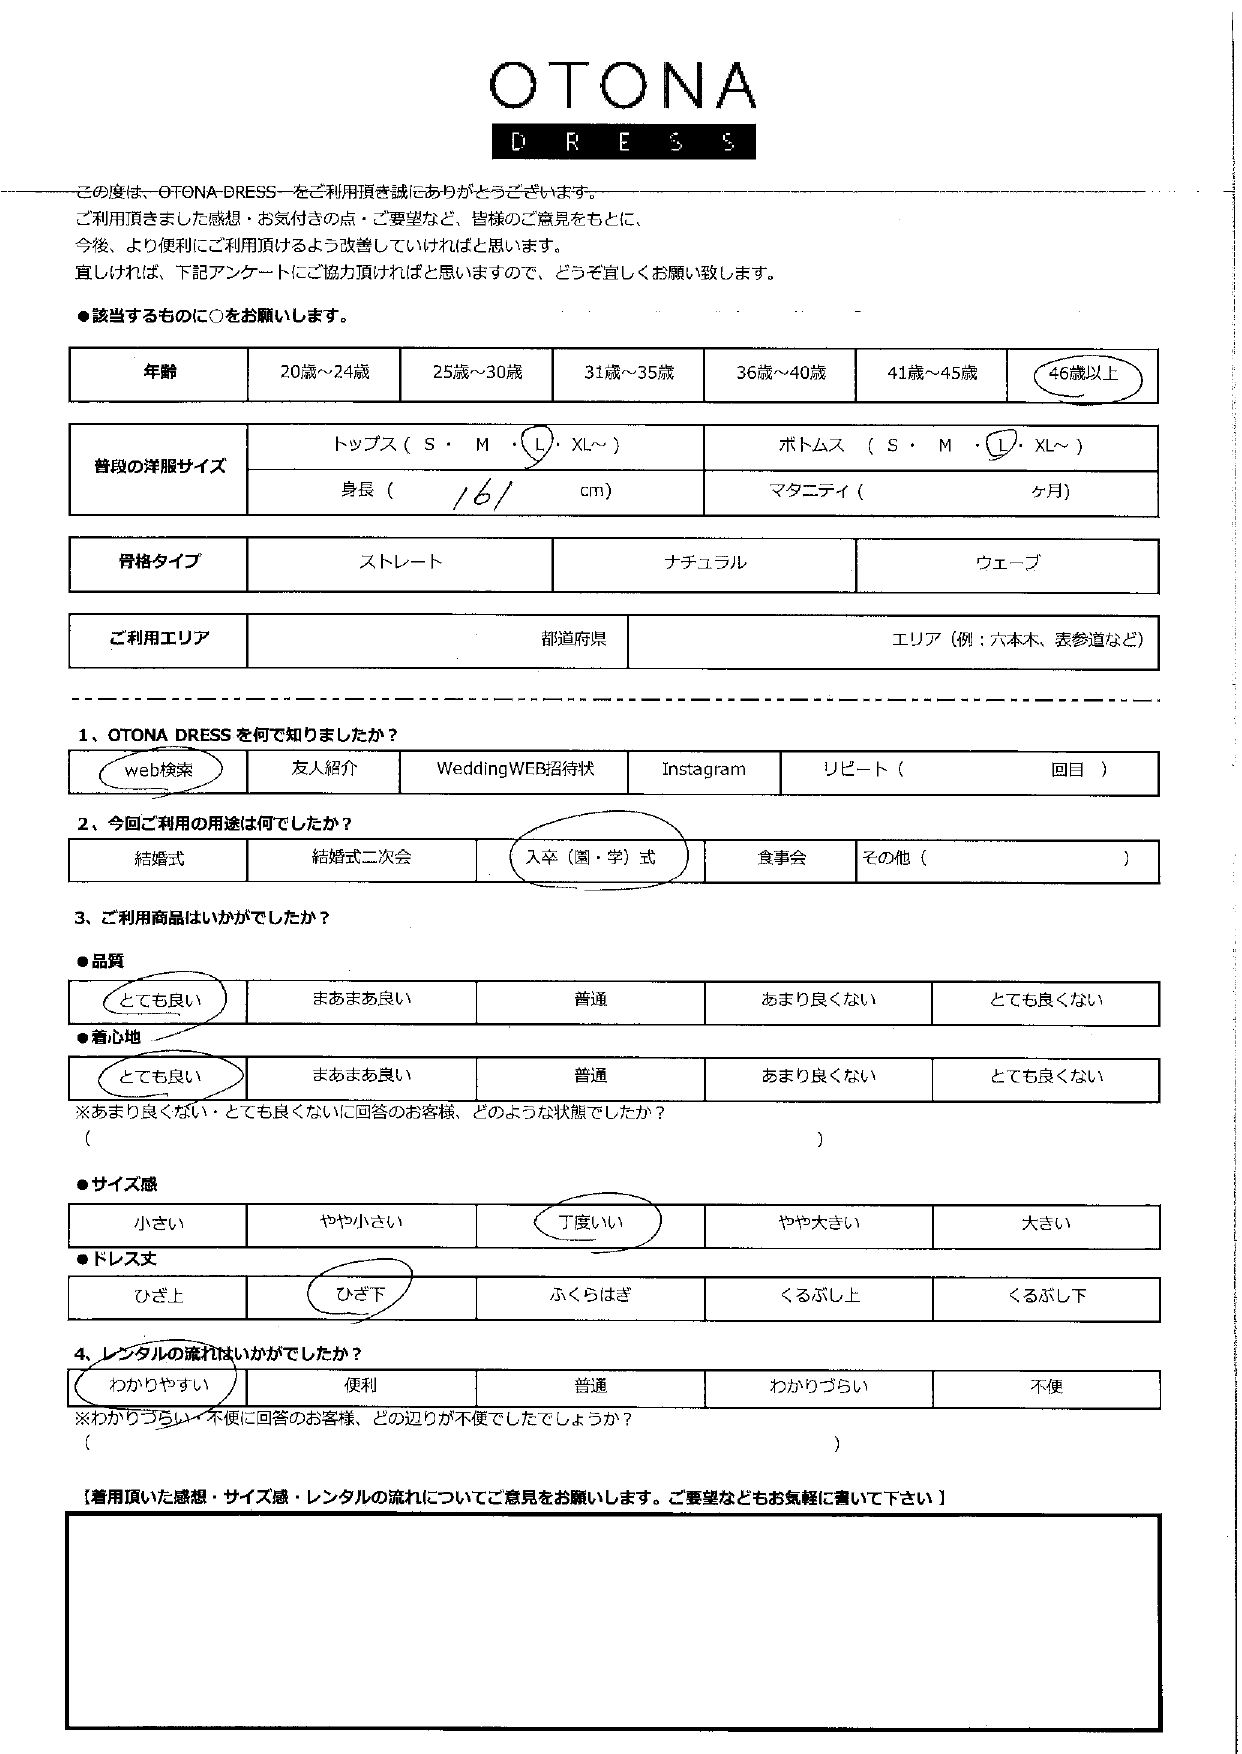 OTONA
DRESS
この度は、OTONA DRESS をご利用頂き誠にありがとうございます。
ご利用頂きました感想・お気付きの点・ご要望など、皆様のご意見をもとに、
今後、より便利にご利用頂けるよう改善していければと思います。
宜しければ、下記アンケートにご協力頂ければと思いますので、どうぞ宜しくお願い致します。
●該当するものに○をお願いします。
年齢 20歳～24歳 25歳～30歳 31歳～35歳 36歳～40歳 41歳～45歳 46歳以上
普段の洋服サイズ トップス ( S ・ M ・ L ・ XL～ ) ボトムス ( S ・ M ・ L ・ XL～ )
身長 ( 161 cm) マタニティ ( ヶ月)
骨格タイプ ストレート ナチュラル ウェーブ
ご利用エリア 都道府県 エリア（例：六本木、表参道など）
1、OTONA DRESS を何で知りましたか？
web検索 友人紹介 WeddingWEB招待状 Instagram リピート（ 回目 ）
2、今回ご利用の用途は何でしたか？
結婚式 結婚式二次会 入卒（園・学）式 食事会 その他（ ）
3、ご利用商品はいかがでしたか？
●品質
とても良い まあまあ良い 普通 あまり良くない とても良くない
●着心地
とても良い まあまあ良い 普通 あまり良くない とても良くない
※あまり良くない・とても良くないに回答のお客様、どのような状態でしたか？
( )
●サイズ感
小さい やや小さい 丁度いい やや大きい 大きい
●ドレス丈
ひざ上 ひざ下 ふくらはぎ くるぶし上 くるぶし下
4、レンタルの流れはいかがでしたか？
わかりやすい 便利 普通 わかりづらい 不便
※わかりづらい・不便に回答のお客様、どの辺りが不便でしたでしょうか？
( )
【着用頂いた感想・サイズ感・レンタルの流れについてご意見をお願いします。ご要望などもお気軽に書いて下さい 】